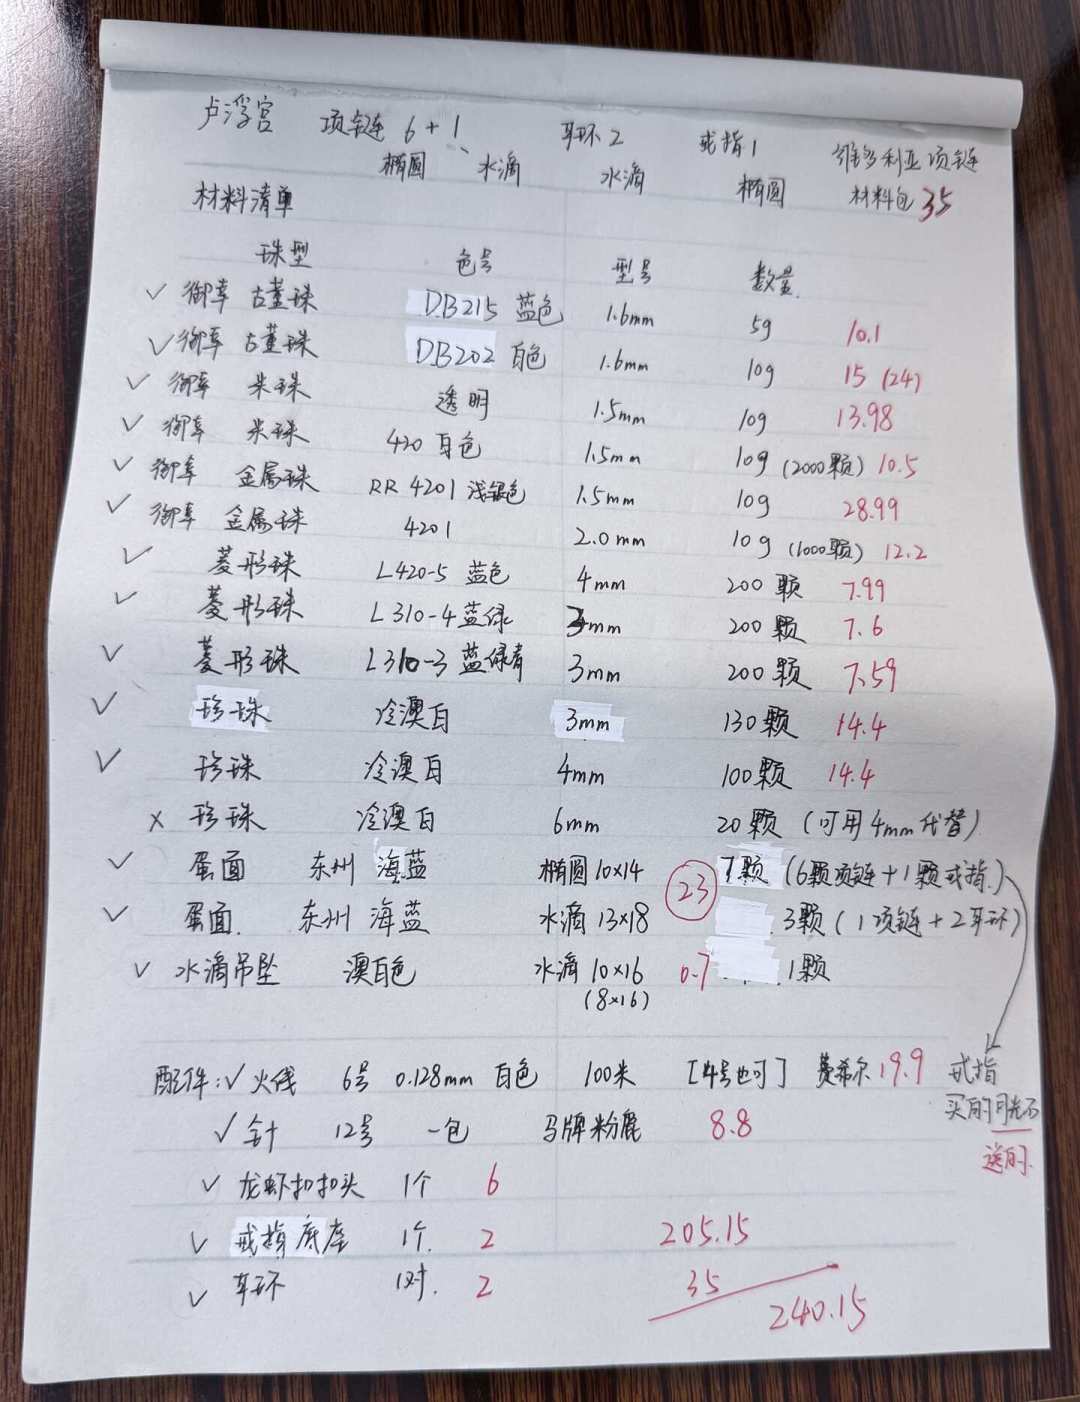 卢浮宫 项链 6+1 耳环2 戒指1 维多利亚项链
椭圆 水滴 水滴 椭圆 材料包 35
材料清单
珠型 色号 型号 数量
✓ 御幸 古董珠 DB215 蓝色 1.6mm 5g 10.1
✓ 御幸 古董珠 DB202 白色 1.6mm 10g 15 (24)
✓ 御幸 米珠 透明 1.5mm 10g 13.98
✓ 御幸 米珠 420 白色 1.5mm 10g (2000颗) 10.5
✓ 御幸 金属珠 RR 4201 浅银色 1.5mm 10g 28.99
✓ 御幸 金属珠 4201 2.0mm 10g (1000颗) 12.2
✓ 菱形珠 L420-5 蓝色 4mm 200颗 7.99
✓ 菱形珠 L310-4 蓝绿 3mm 200颗 7.6
✓ 菱形珠 L310-3 蓝绿青 3mm 200颗 7.59
✓ 珍珠 冷澳白 3mm 130颗 14.4
✓ 珍珠 冷澳白 4mm 100颗 14.4
× 珍珠 冷澳白 6mm 20颗 (可用4mm代替)
✓ 蛋面 东州 海蓝 椭圆 10×14 23 7颗 (6颗项链+1颗戒指)
✓ 蛋面. 东州 海蓝 水滴 13×18 3颗 (1项链+2耳环)
✓ 水滴吊坠 澳白色 水滴 10×16 0.7 1颗
(8×16)
配件: ✓ 火线 6号 0.128mm 白色 100米 [4号也可] 费希尔 19.9 戒指
买的月光石
送的.
✓ 针 12号 一包 马牌粉鹿 8.8
✓ 龙虾扣扣头 1个 6
✓ 戒指底座 1个. 2 205.15
✓ 耳环 1对. 2 35
240.15